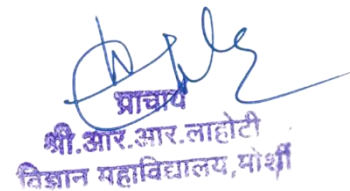 प्राचार्य
श्री.आर.आर.लाहोटी
विज्ञान महाविद्यालय,मोर्शी